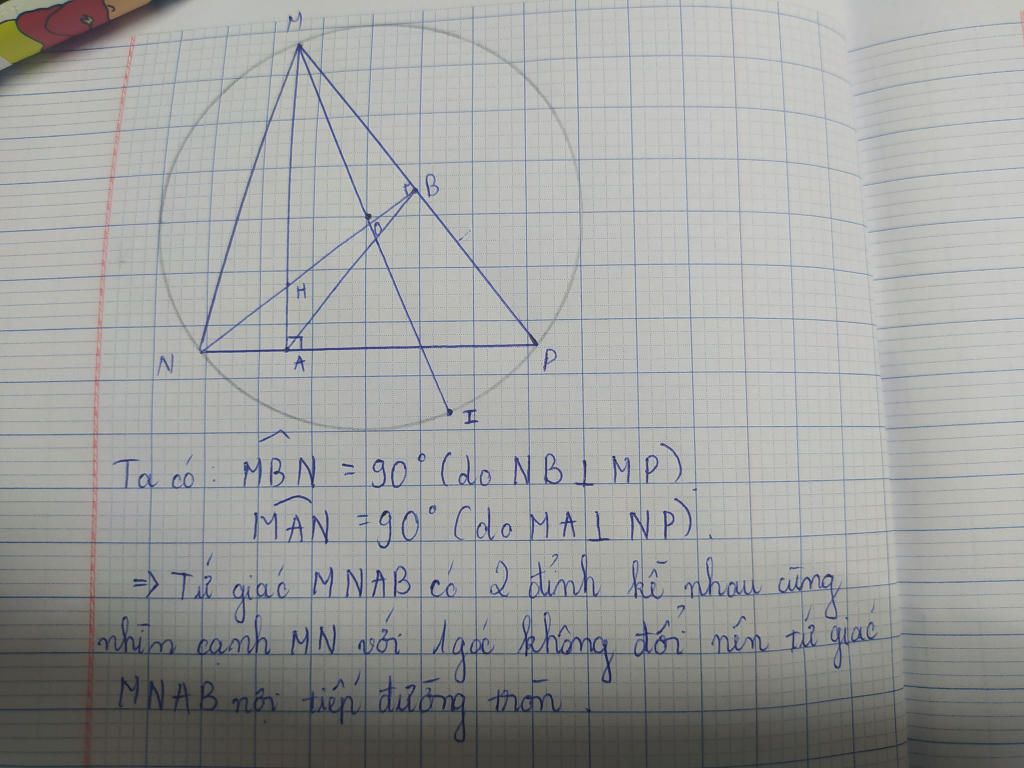 M
B
O
H
N
A
P
I
Ta có: \widehat{MBN} = 90° (do NB ⊥ MP)
\widehat{MAN} = 90° (do MA ⊥ NP).
=> Tứ giác MNAB có 2 đỉnh kề nhau cùng
nhìn cạnh MN với 1 góc không đổi nên tứ giác
MNAB nội tiếp đường tròn.